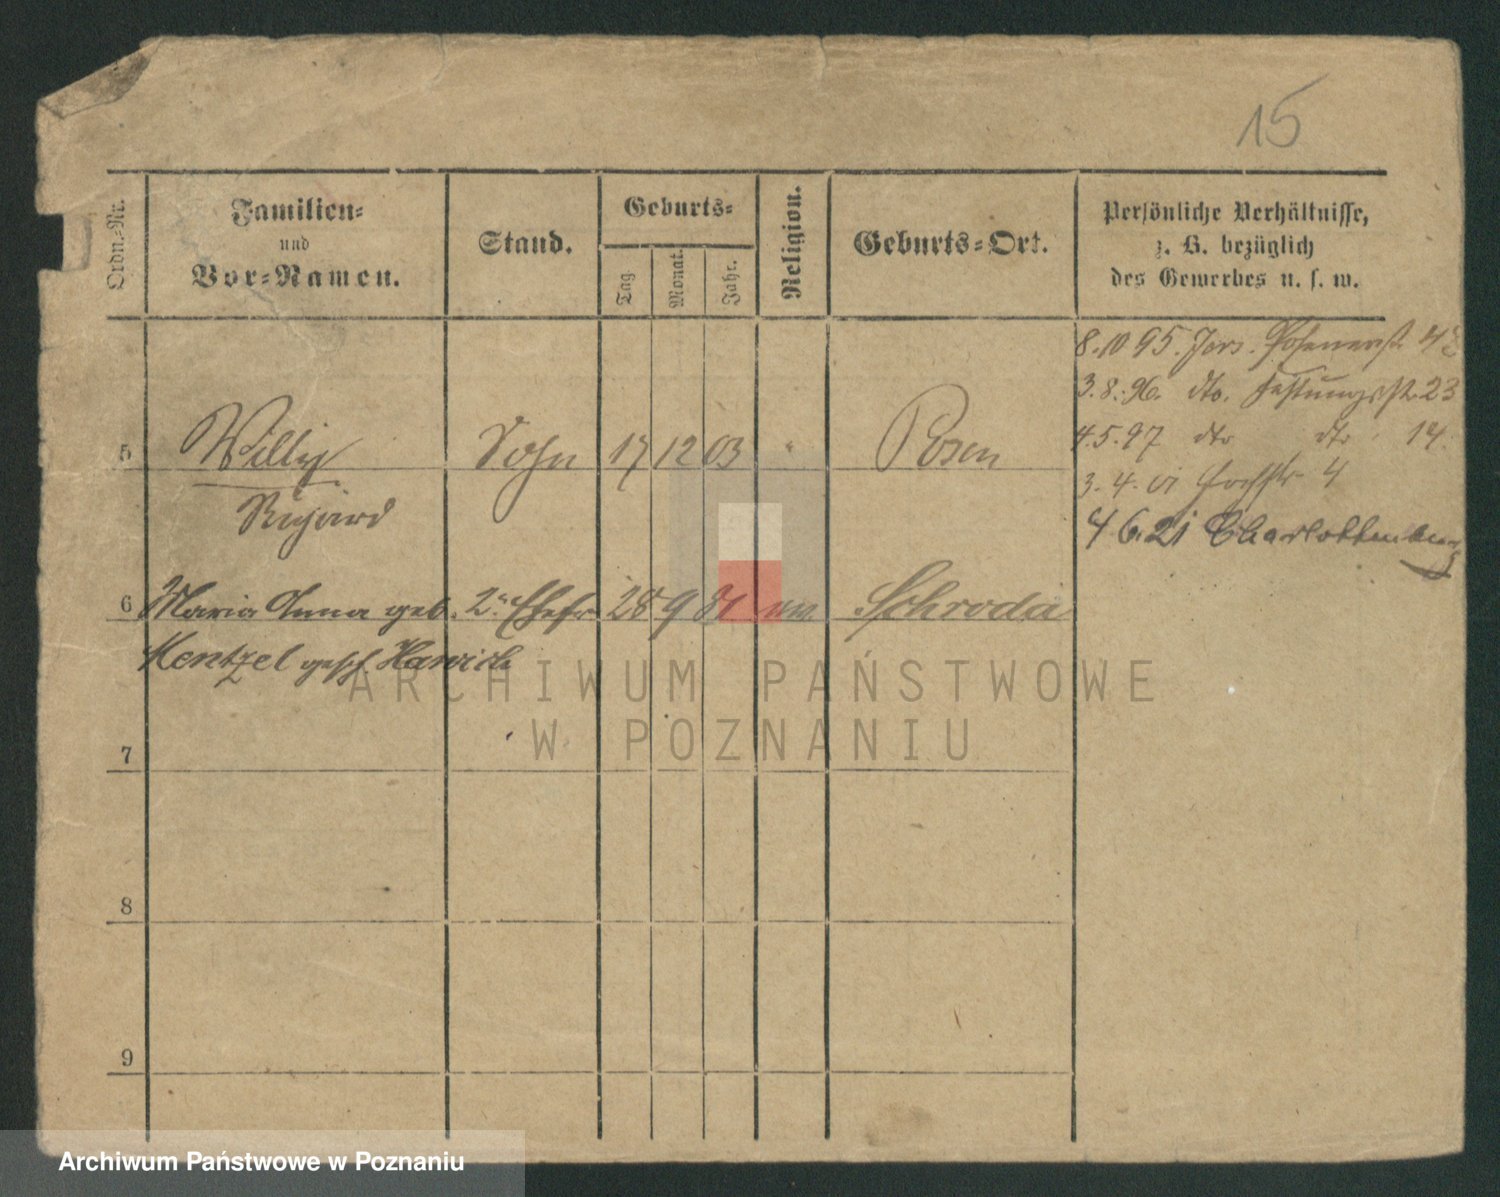 15
Ordn.-Nr.
Familien-
und
Vor-Namen.
Stand.
Geburts-
Tag
Monat.
Jahr.
Religion.
Geburts-Ort.
Persönliche Verhältnisse,
z. B. bezüglich
des Gewerbes u. s. w.
8.10 95. Jers. Posenerstr.
3.8.96. dto. Festungsstr. 23
4.5.97 dto dto 14.
5 Willy Sohn 17 12 03 " Posen
3.4.01 Hochstr 4
Richard
4 6.21 Charlottenburg
6 Maria Anna geb. 2te Ehefr 28 9 81 Schroda
Kentzel gesch.
7
8
9
ARCHIWUM PAŃSTWOWE
W POZNANIU
Archiwum Państwowe w Poznaniu